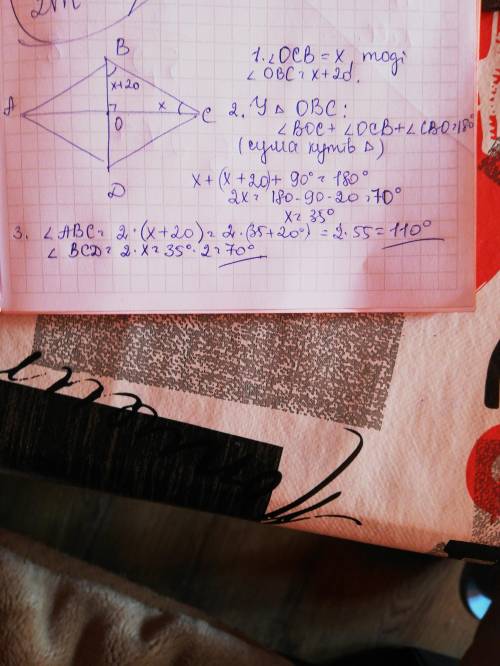 2m
B
x+20
A
O
x
C
D
1. ∠OCB = x, тоді
∠OBC = x+20.
2. У △ OBC:
∠BOC + ∠OCB + ∠CBO = 180°
(сума кутів △)
x + (x+20) + 90° = 180°
2x = 180-90-20 = 70°
x = 35°
3. ∠ABC = 2·(x+20) = 2·(35+20°) = 2·55 = 110°
∠ BCD = 2·x = 35°·2 = 70°